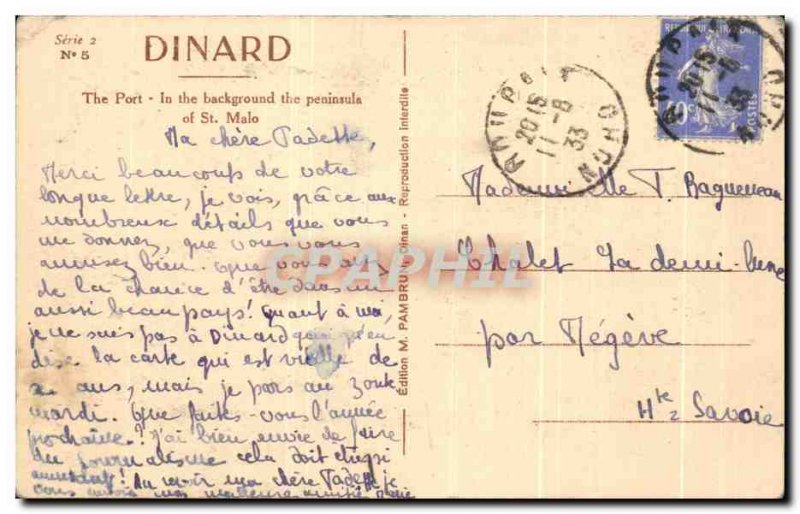 Série 2
Nº 5
DINARD
The Port - In the background the peninsula
of St. Malo
Ma chère Dadette,
Merci beaucoup de votre
longue lettre, je vois, grâce aux
nombreux détails que vous
me donnez, que vous vous
amusez bien. que vous avez
de la chance d'être dans un
aussi beau pays! Quant à moi,
je ne suis pas à Dinard quoi qu'en
dise la carte qui est vieille de
2 ans, mais je pars au
mardi. que faites-vous l'année
prochaine? J'ai bien envie de faire
du journalisme cela doit être si
amusant! Au revoir ma chère Dadette je
vous envoie mes meilleures amitiés
Edition M. PAMBRUN, Dinan - Reproduction interdite
CPAPHIL
20 15
11 -8
33
20 15
11 -8
33
40c
POSTES
Mademoiselle T. Bagueneau
Chalet La demi-lune
par Mégève
Hte Savoie